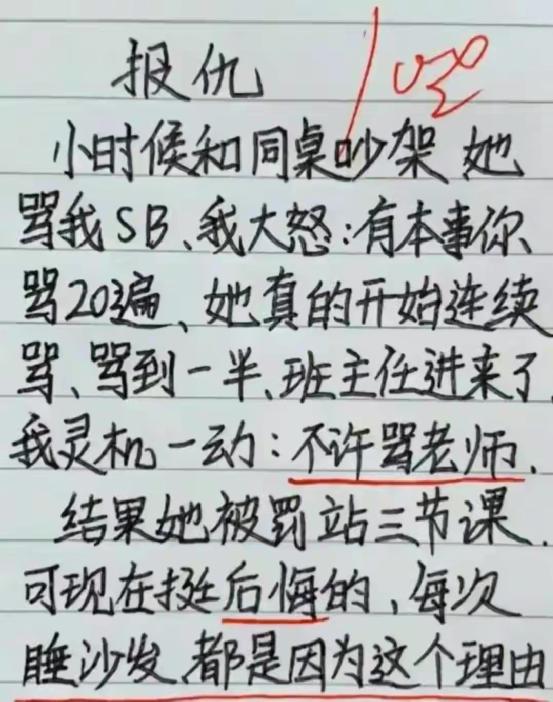 报仇
小时候和同桌吵架 她
骂我SB、我大怒：有本事你
骂20遍、她真的开始连续
骂、骂到一半、班主任进来了.
我灵机一动：不许骂老师.
结果她被罚站三节课.
可现在挺后悔的、每次
睡沙发、都是因为这个理由